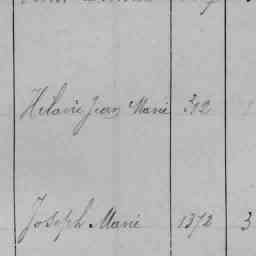 Hilaire Jean Marie 312
Joseph Marie 1372 3